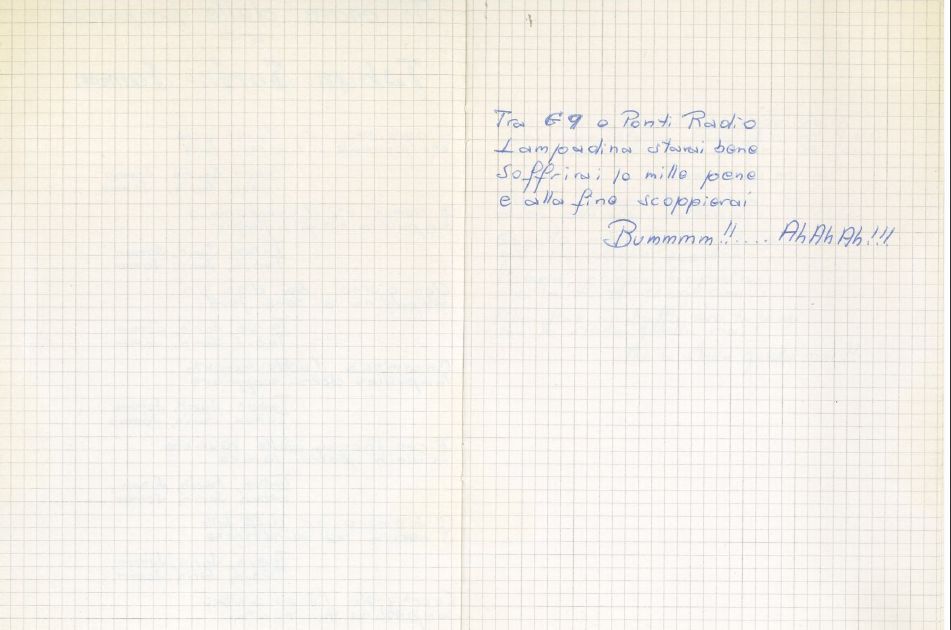 Tra G9 e Ponti Radio
Lampadina starai bene
Soffrirai le mille pene
e alla fine scoppierai
Bummmm!!.... AhAhAh!!!